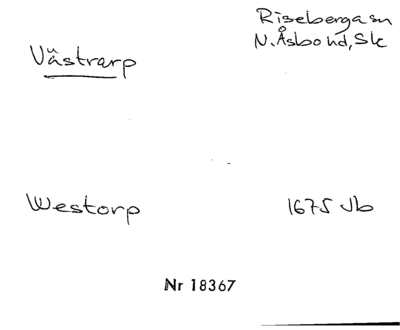 Västrarp
Riseberga sn
N. Åsbo hd, Sk
Westorp
1675 Jb
Nr 18367